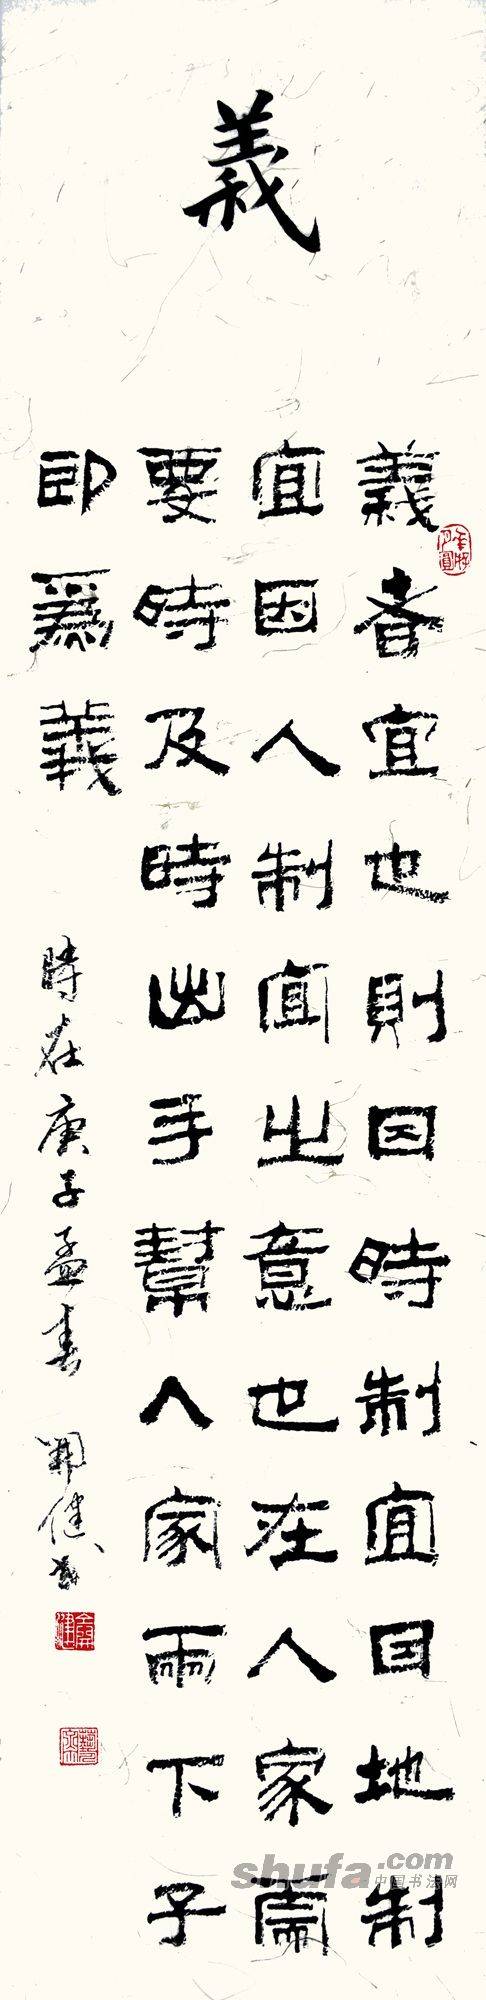 義
義者宜也則因時制宜因地制
宜因人制宜之意也在人家需
要時及時出手幫人家兩下子
即爲義
時在庚子孟春 開健書
shufa.com
中国书法网